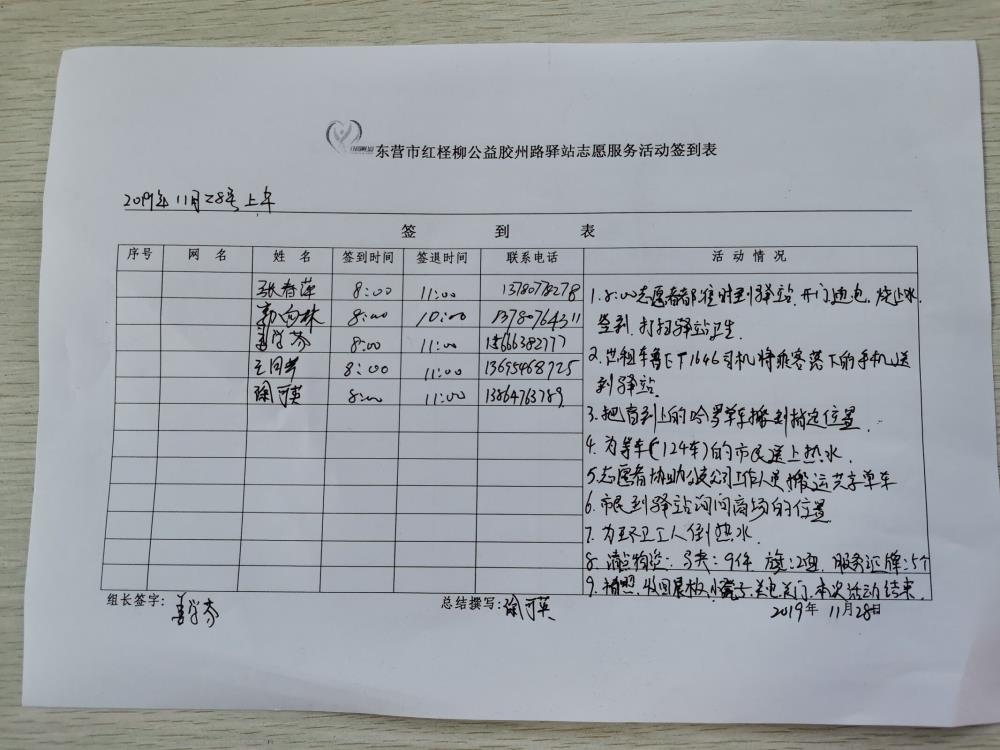 东营市红柽柳公益胶州路驿站志愿服务活动签到表
2019年11月28号上午
签 到 表
序号 网 名 姓 名 签到时间 签退时间 联系电话 活 动 情 况
张春萍 8:00 11:00 13780778278
郭向林 8:00 10:00 13780764311
姜学芬 8:00 11:00 15666382777
王同芳 8:00 11:00 13695468925
陶可英 8:00 11:00 13864763789
1. 8:00志愿者都准时到驿站.开门通电.烧上水.
签到.打扫驿站卫生
2.出租车鲁ET1646司机将乘客落下的手机送
到驿站.
3.把盲道上的哈罗单车搬到指定位置.
4.为等车(124车)的市民送上热水.
5.志愿者协助公交公司工作人员搬运共享单车
6.市民到驿站询问商场的位置
7.为环卫工人倒热水.
8.清点物资:马夹:9件 旗:2面 服务证牌:5个
9.拍照.收回展板.小凳子.关电关门.本次活动结束.
组长签字: 姜学芬 总结撰写: 陶可英 2019年11月28日